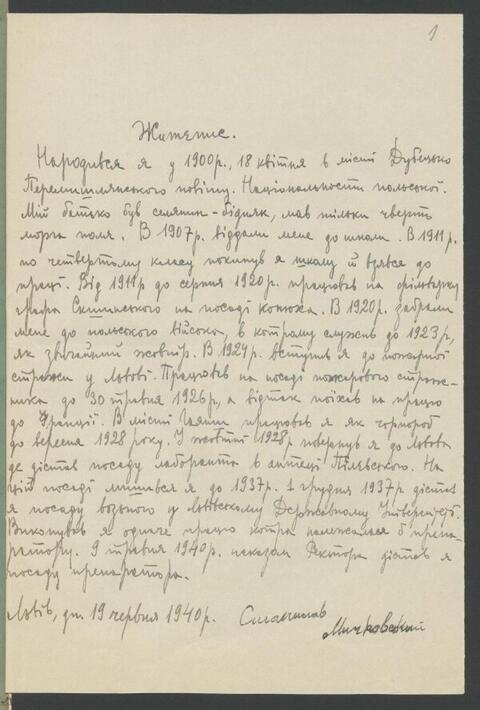 1
Житепис.
Народився я у 1900 р., 18 квітня в місті Дубецько
Перемишлянського повіту. Національности польської.
Мій батько був селянин-бідняк, мав тільки чверть
морга поля. В 1907 р. віддали мене до школи. В 1911 р.
по четвертому класу покинув я школу й взявся до
праці. Від 1911 р до серпня 1920 р. працював на фільварку
графа на посаді конюха. В 1920 р. забрали
мене до польського війська, в котрому служив до 1923 р,
як звичайний жовнір. В 1924 р. вступив я до пожарної
сторожи у Львові. Працював на посаді пожарового
до 30 травня 1926 р, а відтак поїхав на працю
до Франції. В місті працював я як чорнороб
до вересня 1928 року. У жовтні 1928 р повернув я до Львова
де дістав посаду лаборанта в аптеці Пілевського. На
цій посаді лишився я до 1937 р. 1 грудня 1937 р дістав
я посаду возьного у Львівському Державному Університеті.
Виконував я одначе працю котра належалася б препа-
ратору. 9 травня 1940 р. наказом Ректора дістав я
посаду препаратора.
Львів, дн. 19 червня 1940 р.
Станислав
Мичковский